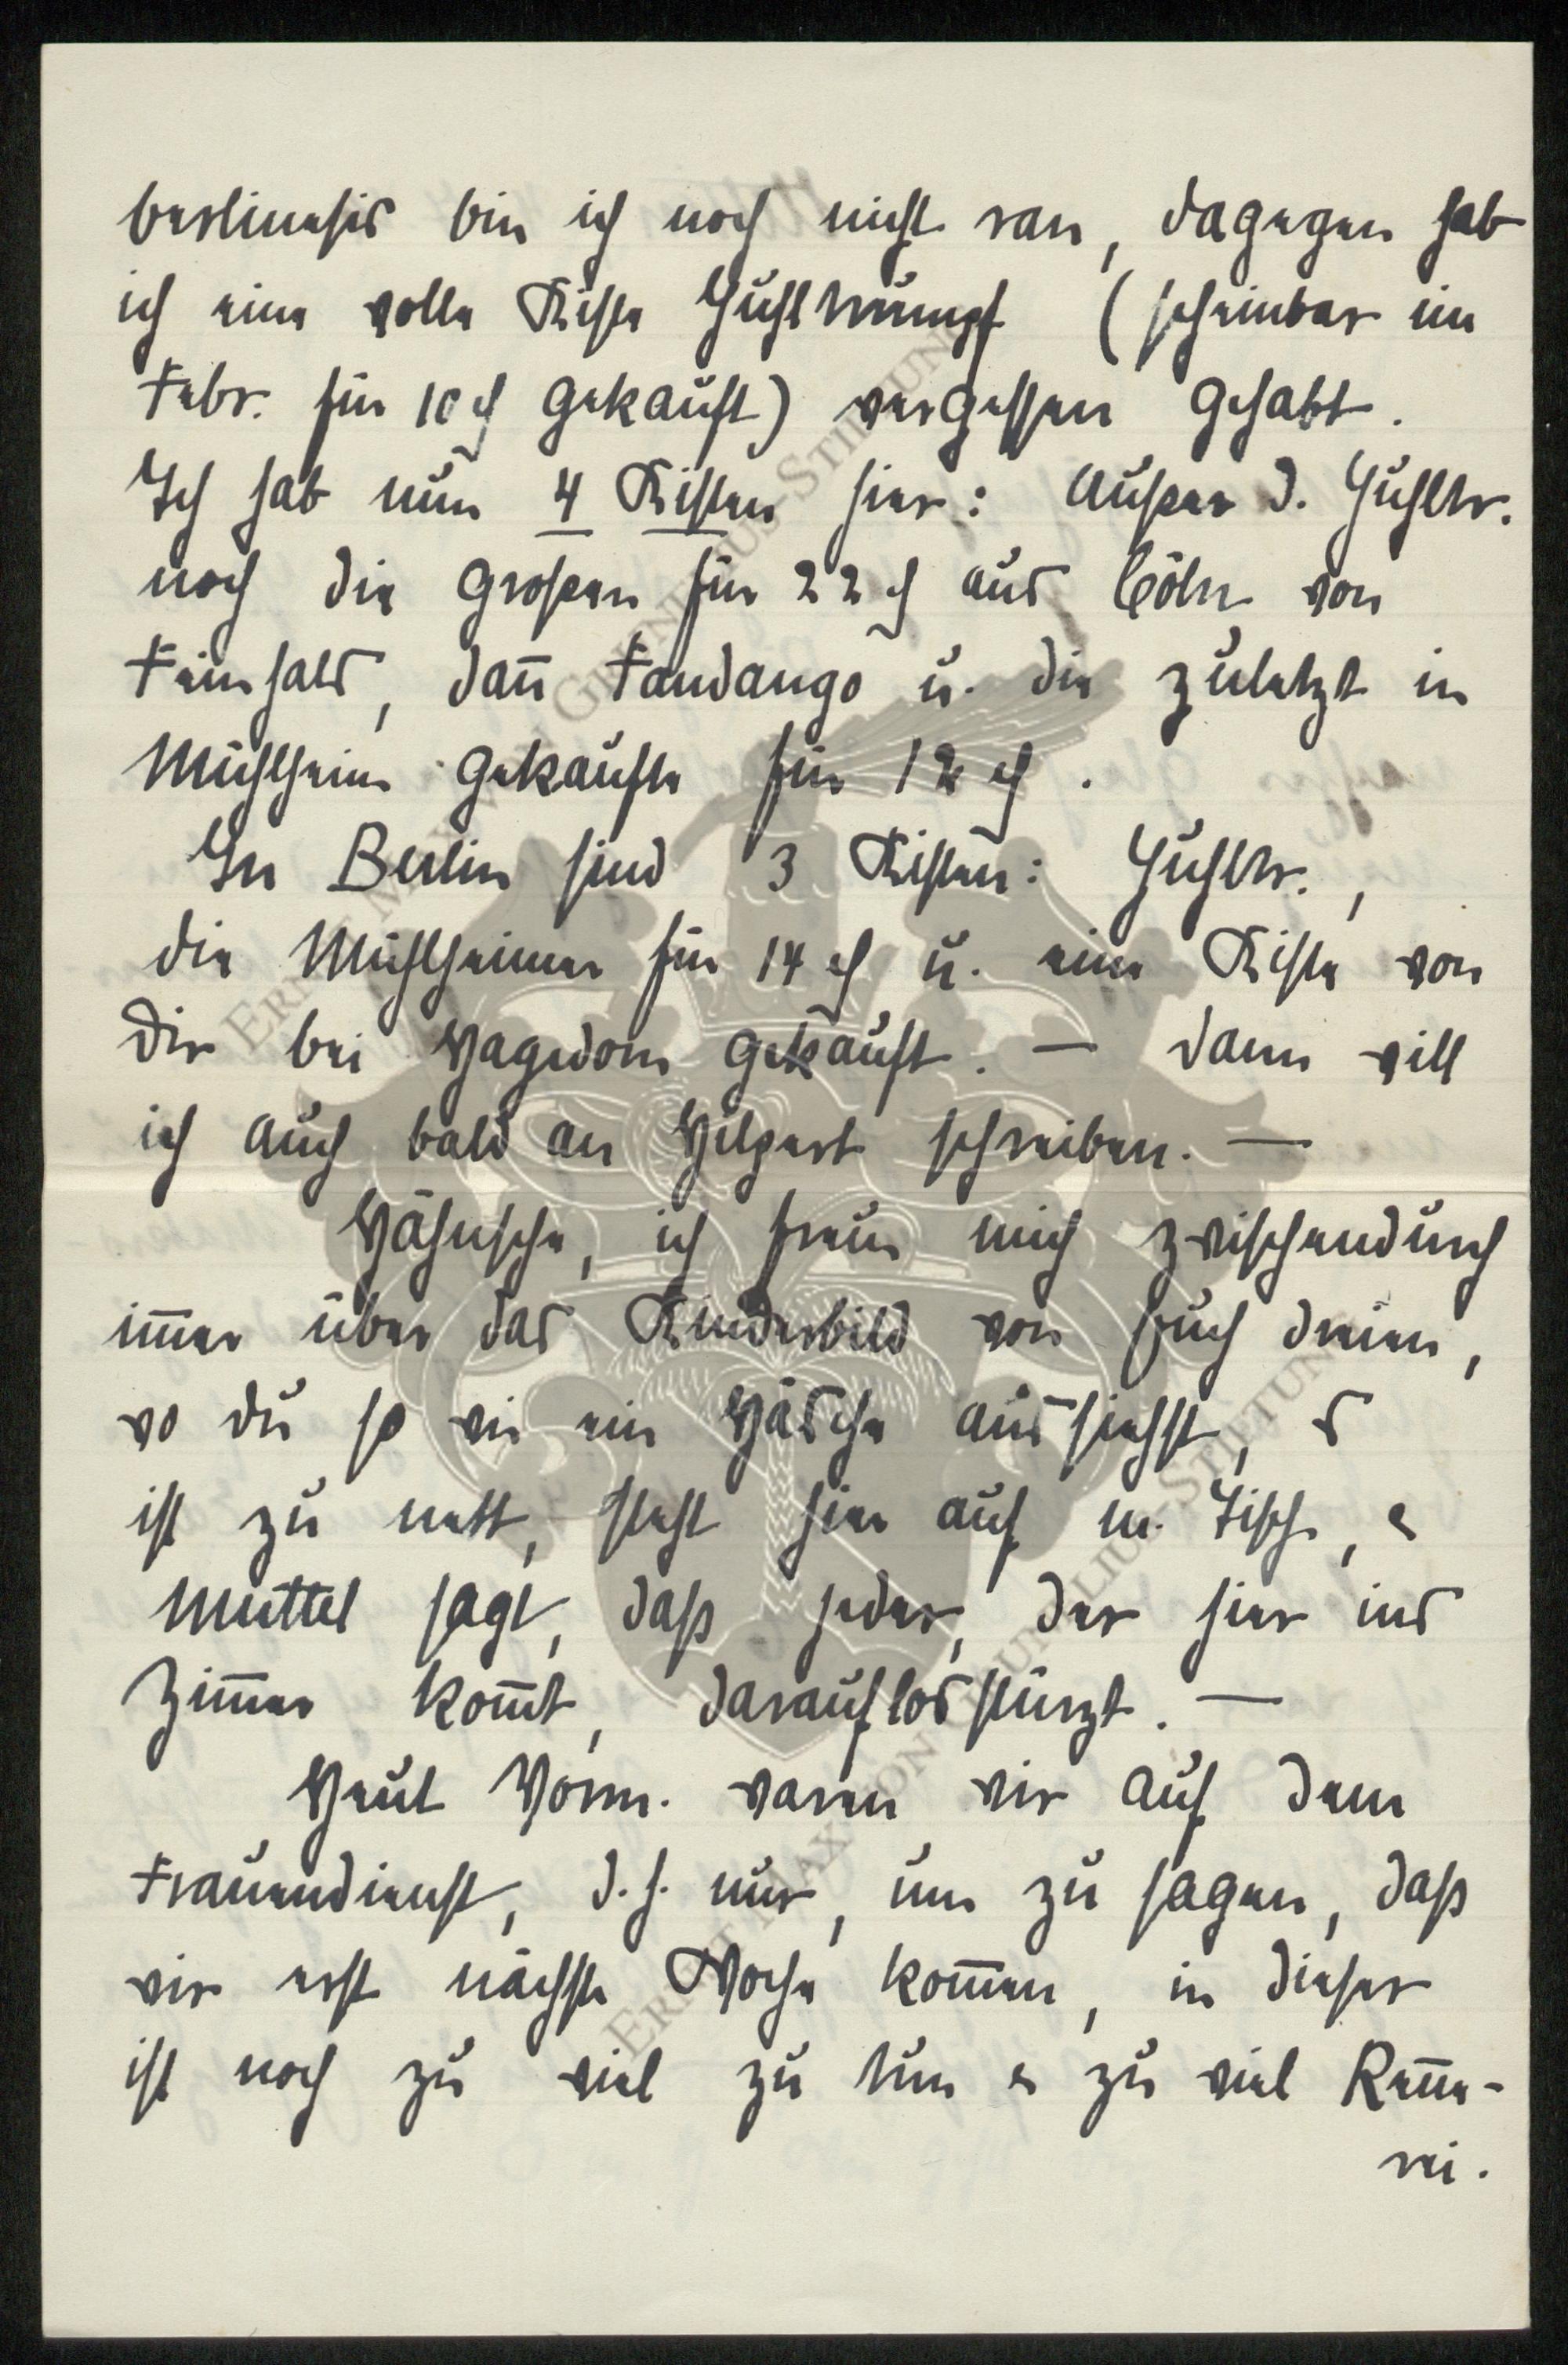 berlinesis bin ich noch nicht ran, dagegen hab
ich eine volle Kiste Guhltrumpf (scheinbar im
Febr. für 10 ₰ gekauft) vergessen gehabt.
Ich hab nun 4 Kisten hier: außer d. Guhltr.
noch die großen für 22 ₰ aus Cöln von
Feinhals, dañ Fandango u. die zuletzt in
Mühlheim gekaufte für 12 ₰.
In Berlin sind 3 Kisten: Guhltr.,
die Mühlheimer für 14 ₰ u. eine Kiste von
Dir bei Hagedorn gekauft. — dann will
ich auch bald an Hilgert schreiben. —
Hähnsche, ich freu mich zwischendurch
im̄er über das Kinderbild von Euch dreien,
wo du so wie ein Häsche aussiehst, s
ist zu nett, steht hier auf m. Tisch, &
Muttel sagt, daß jeder, der hier ins
Zim̄er kom̄t, darauflosstürzt. —
Heut Vorm. waren wir auf dem
Frauendienst, d.h. nur, um zu sagen, daß
wir erst nächste Woche kom̄en, in dieser
ist noch zu viel zu tun & zu viel Reñe-
rei.
ERNST MAX VON GRUNELIUS-STIFTUNG
ERNST MAX VON GRUNELIUS-STIFTUNG